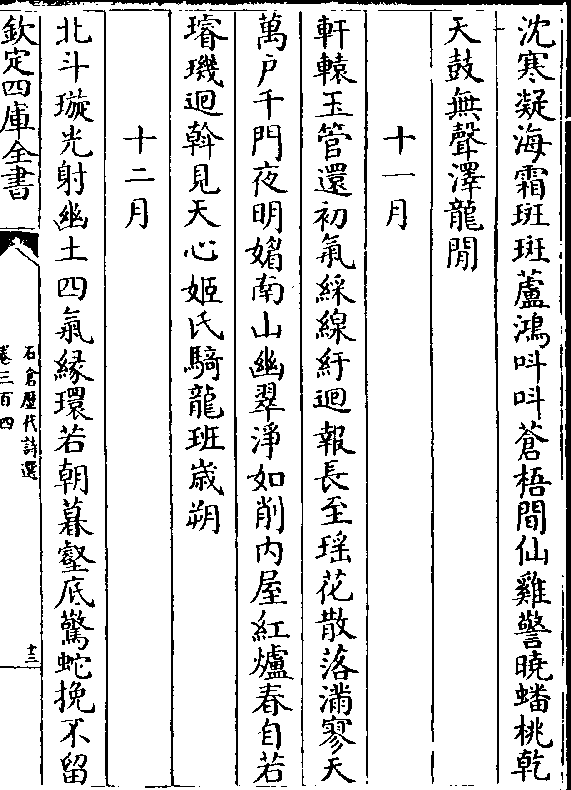 沈寒凝海霜斑斑蘆鴻呌呌蒼梧間仙雞警曉蟠桃乾
天鼓無聲澤龍閒
十一月
軒轅玉管還初氣綵線紆迴報長至瑶花散落滿寥天
萬戶千門夜明媚南山幽翠淨如削内屋紅爐春自若
璿璣迴斡見天心姬氏騎龍班歳朔
十二月
北斗璇光射幽土四氣緣環若朝暮壑底驚蛇挽不留
欽定四庫全書
石倉歴代詩選
卷三百四
十三